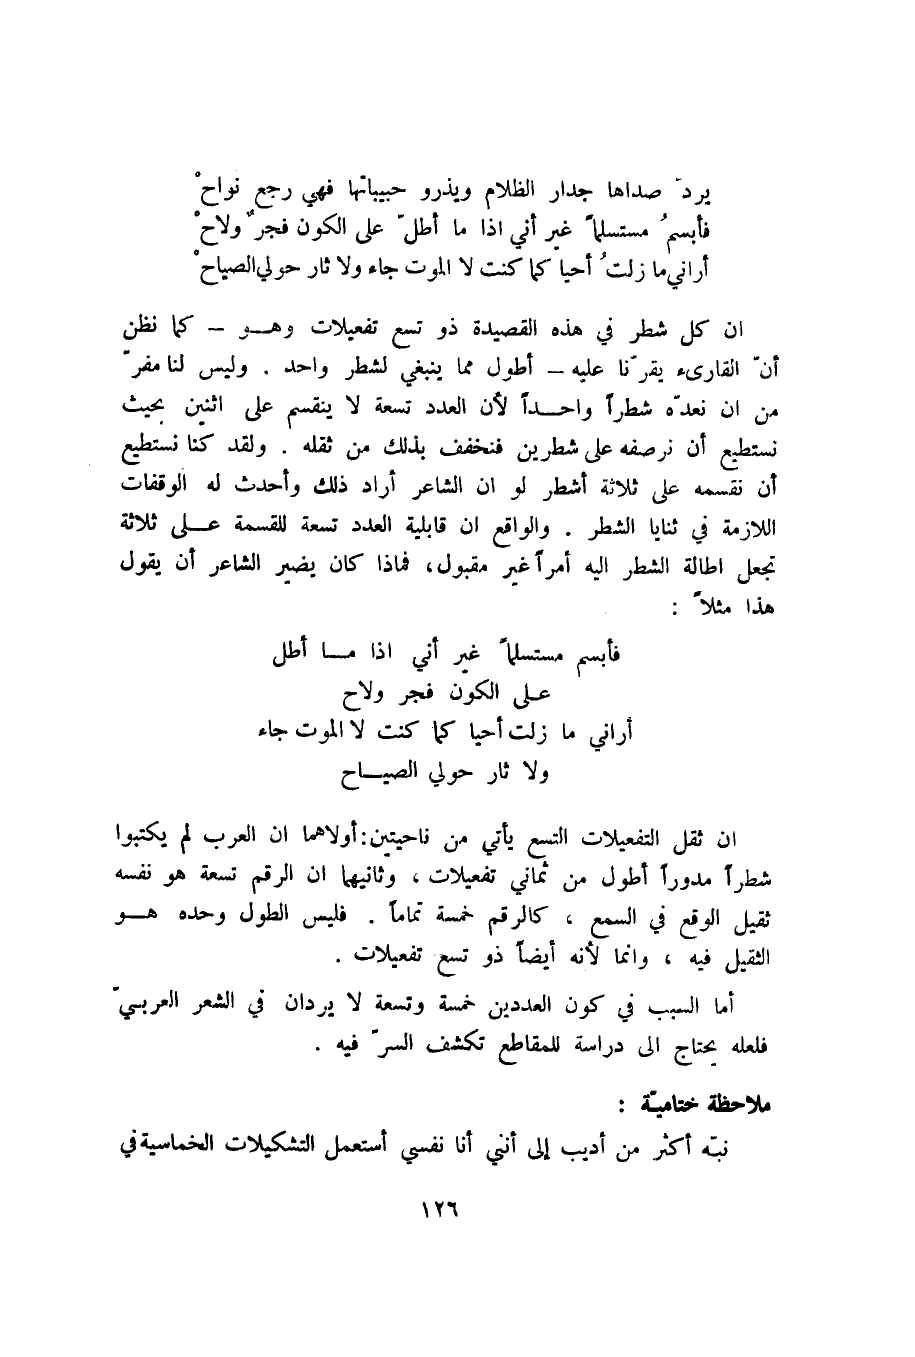 يردّ صداها جدار الظلام ويذرو حبيباتها فهي رجع نواحْ
فأبسمُ مستسلماً غير أني اذا ما أطلّ على الكون فجرٌ ولاحْ
أراني ما زلتُ أحيا كما كنت لا الموت جاء ولا ثار حولي الصياحْ
ان كل شطر في هذه القصيدة ذو تسع تفعيلات وهــو – كما نظن
أنّ القارىء يقرّنا عليه – أطول مما ينبغي لشطر واحد . وليس لنا مفرّ
من ان نعدّه شطراً واحــداً لأن العدد تسعة لا ينقسم على اثنين بحيث
نستطيع أن نرصفه على شطرين فنخفف بذلك من ثقله . ولقد كنا نستطيع
أن نقسمه على ثلاثة أشطر لو ان الشاعر أراد ذلك وأحدث له الوقفات
اللازمة في ثنايا الشطر . والواقع ان قابلية العدد تسعة للقسمة عــلى ثلاثة
تجعل اطالة الشطر اليه أمراً غير مقبول، فماذا كان يضير الشاعر أن يقول
هذا مثلاً :
فأبسم مستسلماً غير أني اذا مــا أطل
عــلى الكون فجر ولاح
أراني ما زلت أحيا كما كنت لا الموت جاء
ولا ثار حولي الصيــاح
ان ثقل التفعيلات التسع يأتي من ناحيتين: أولاهما ان العرب لم يكتبوا
شطراً مدوراً أطول من ثماني تفعيلات ، وثانيهما ان الرقم تسعة هو نفسه
ثقيل الوقع في السمع ، كالرقم خمسة تماماً . فليس الطول وحده هــو
الثقيل فيه ، وانما لأنه أيضاً ذو تسع تفعيلات .
أما السبب في كون العددين خمسة وتسعة لا يردان في الشعر العربــيّ
فلعله يحتاج الى دراسة للمقاطع تكشف السرّ فيه .
ملاحظة ختاميّة :
نبّه أكثر من أديب إلى أنني أنا نفسي أستعمل التشكيلات الخماسية في
١٢٦